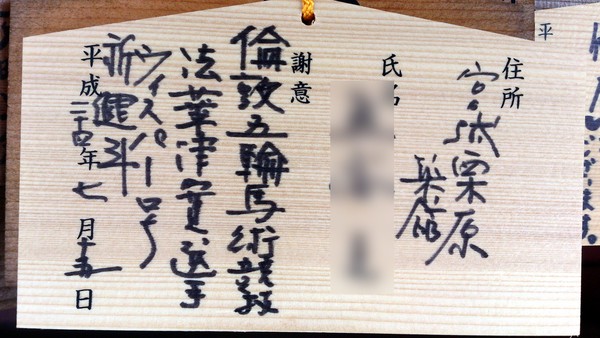 住所
宮城栗原
築館
氏名
謝意
倫敦五輪馬術競技
法華津寛選手
ウィスパー号
祈健斗
平成二十四年七月十五日
平